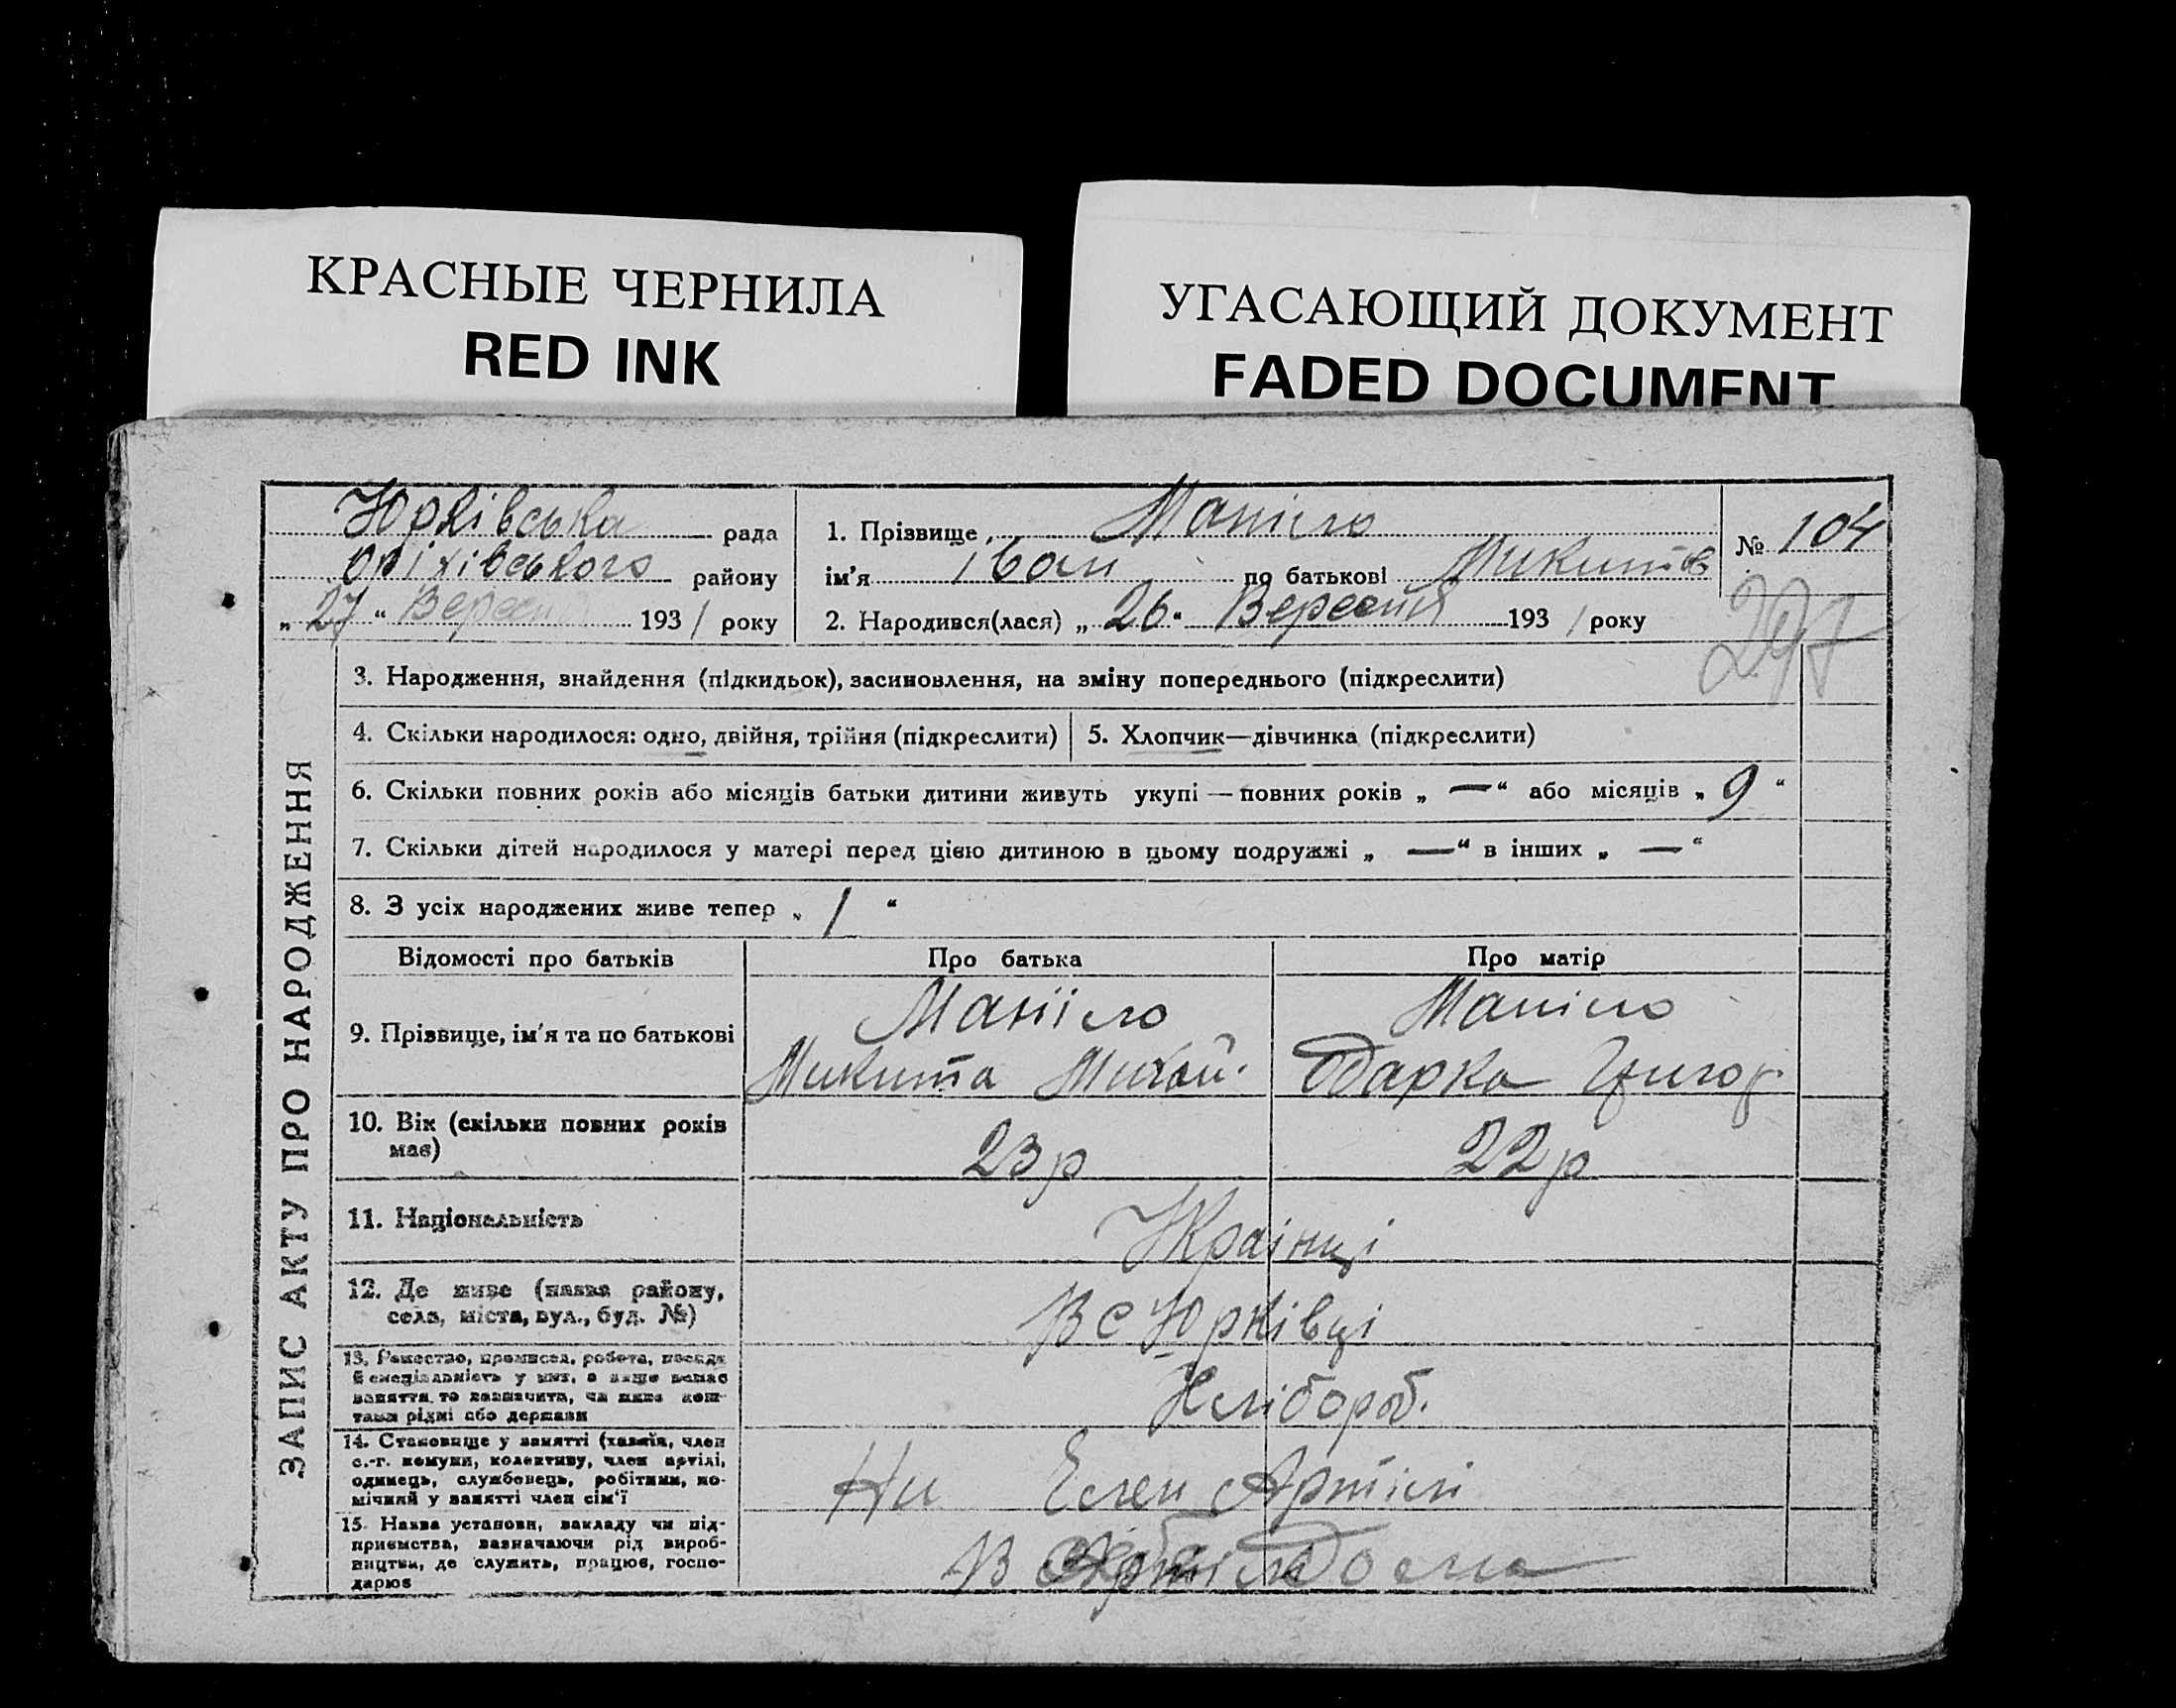 КРАСНЫЕ ЧЕРНИЛА
RED INK
УГАСАЮЩИЙ ДОКУМЕНТ
FADED DOCUMENT
Юрківська рада
оріхівського району
„ 27 “ Вересня 1931 року
1. Прізвище, Маніло
ім'я Іван по батькові Микитов
2. Народився(лася) „ 26 “ Вересня 1931 року
№ 104
297
ЗАПИС АКТУ ПРО НАРОДЖЕННЯ
3. Народження, знайдення (підкидьок), засиновлення, на зміну попереднього (підкреслити)
4. Скільки народилося: одно, двійня, трійня (підкреслити)
5. Хлопчик—дівчинка (підкреслити)
6. Скільки повних років або місяців батьки дитини живуть укупі — повних років „ — “ або місяців „ 9 “
7. Скільки дітей народилося у матері перед цією дитиною в цьому подружжі „ — “ в інших „ — “
8. З усіх народжених живе тепер „ 1 “
Відомості про батьків
Про батька
Про матір
9. Прізвище, ім'я та по батькові
Маніло
Микита Михай.
Маніло
Одарка Григор
10. Вік (скільки повних років
має)
23 р
22 р
11. Національність
Українці
12. Де живе (назва району,
села, міста, вул., буд. №)
В с Юрківці
13. Ремество, промисел, робота, посада
й спеціальність у них, а якщо немає
заняття, то зазначити, чи живе кош-
тами рідні або держави
Хлібороб.
14. Становище у занятті (хазяїн, член
с.-г. комуни, колективу, член артілі,
одинець, службовець, робітник, по-
мічний у занятті член сім'ї
Член Артілі
15. Назва установи, закладу чи під-
приємства, зазначаючи рід вироб-
ництва, де служить, працює, госпо-
дарює
В